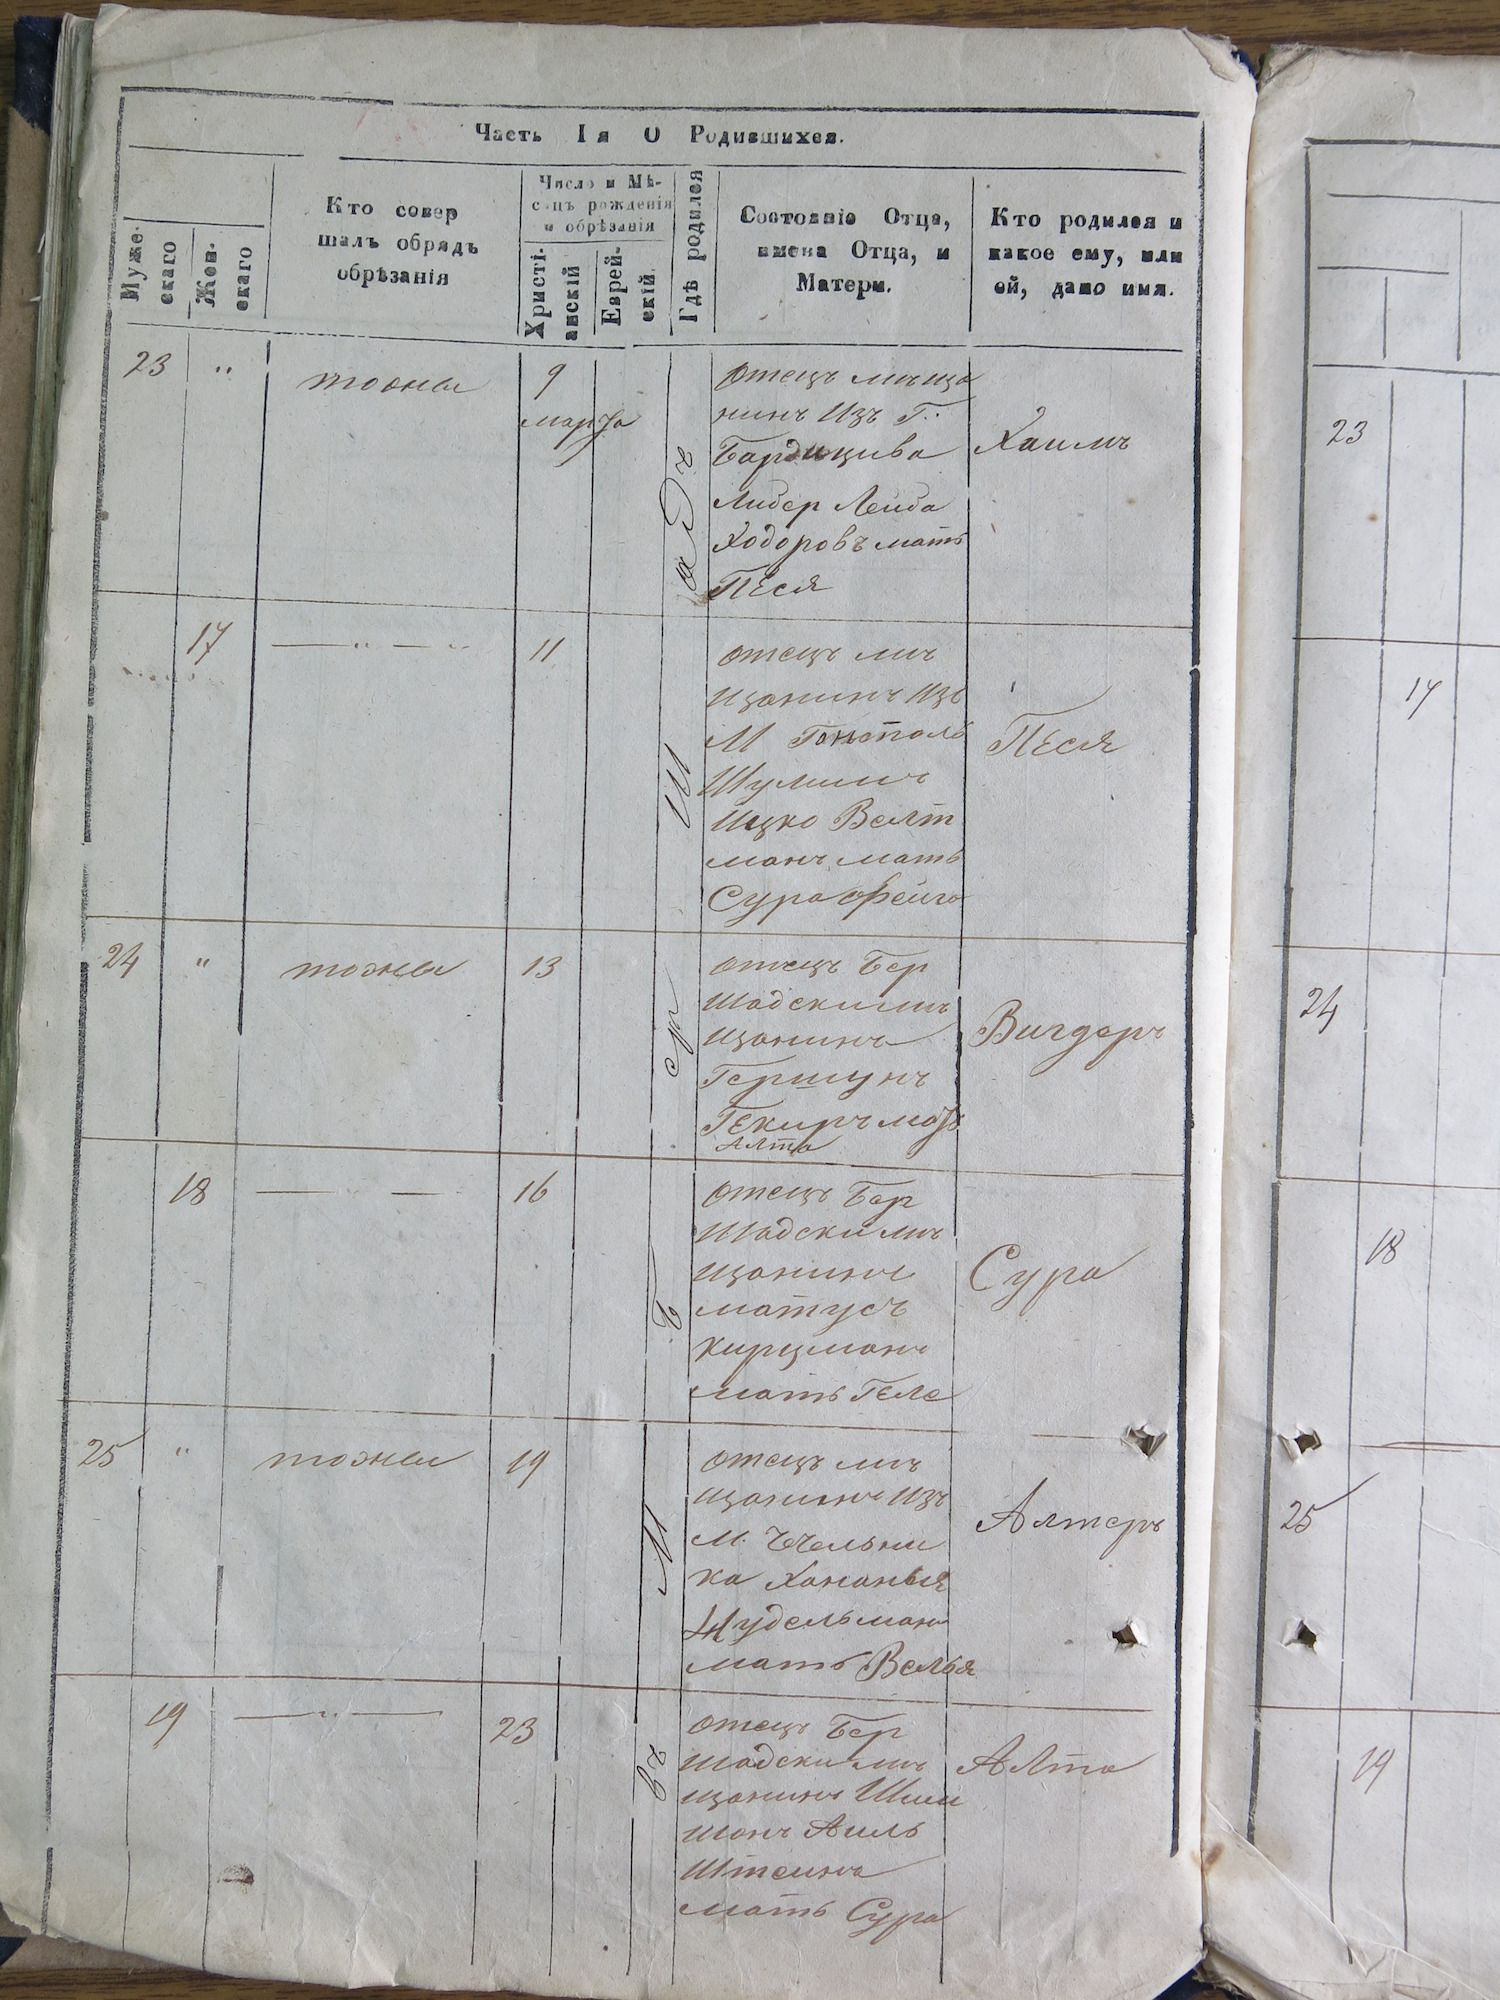 Часть Iя О Родившихся.
Муже-
скаго
Жен-
скаго
Кто совер
шалъ обрядъ
обрѣзанія
Число и Мѣ-
сяцъ рожденія
и обрѣзанія
Христі-
анскій
Еврей-
скій
Гдѣ родился
Состояніе Отца,
имена Отца, и
Матери.
Кто родился и
какое ему, или
ей, дано имя.
23 " тоже 9
марта
отецъ мѣща
нинъ Изъ Г.
Бардицива
Либер Лейба
Ходоровъ мать
Песя
Хаимъ
17 — " — " 11
отецъ мѣ
щанинъ Изъ
М
Шулимъ
Ицко Велт
манъ мать
Сура Фейга
Песя
24 " тоже 13
отецъ Бер
шадски мѣ
щанинъ
Гершунъ
мать
Алта
Вигдоръ
18 — " — 16
отецъ Бер
шадски мѣ
щанинъ
Матусъ
Кирцманъ
мать Геле
Сура
25 " тоже 19
отецъ мѣ
щанинъ Изъ
М. Чечельни
ка Хананья
Шудельман
мать Велья
Алтеръ
19 — " — 23
отецъ Бер
шадски мѣ
щанинъ Шим
шонъ Аиль
Штеинъ
мать Сура
Алта
въ М Б ер Ш адъ
23
17
24
18
25
19